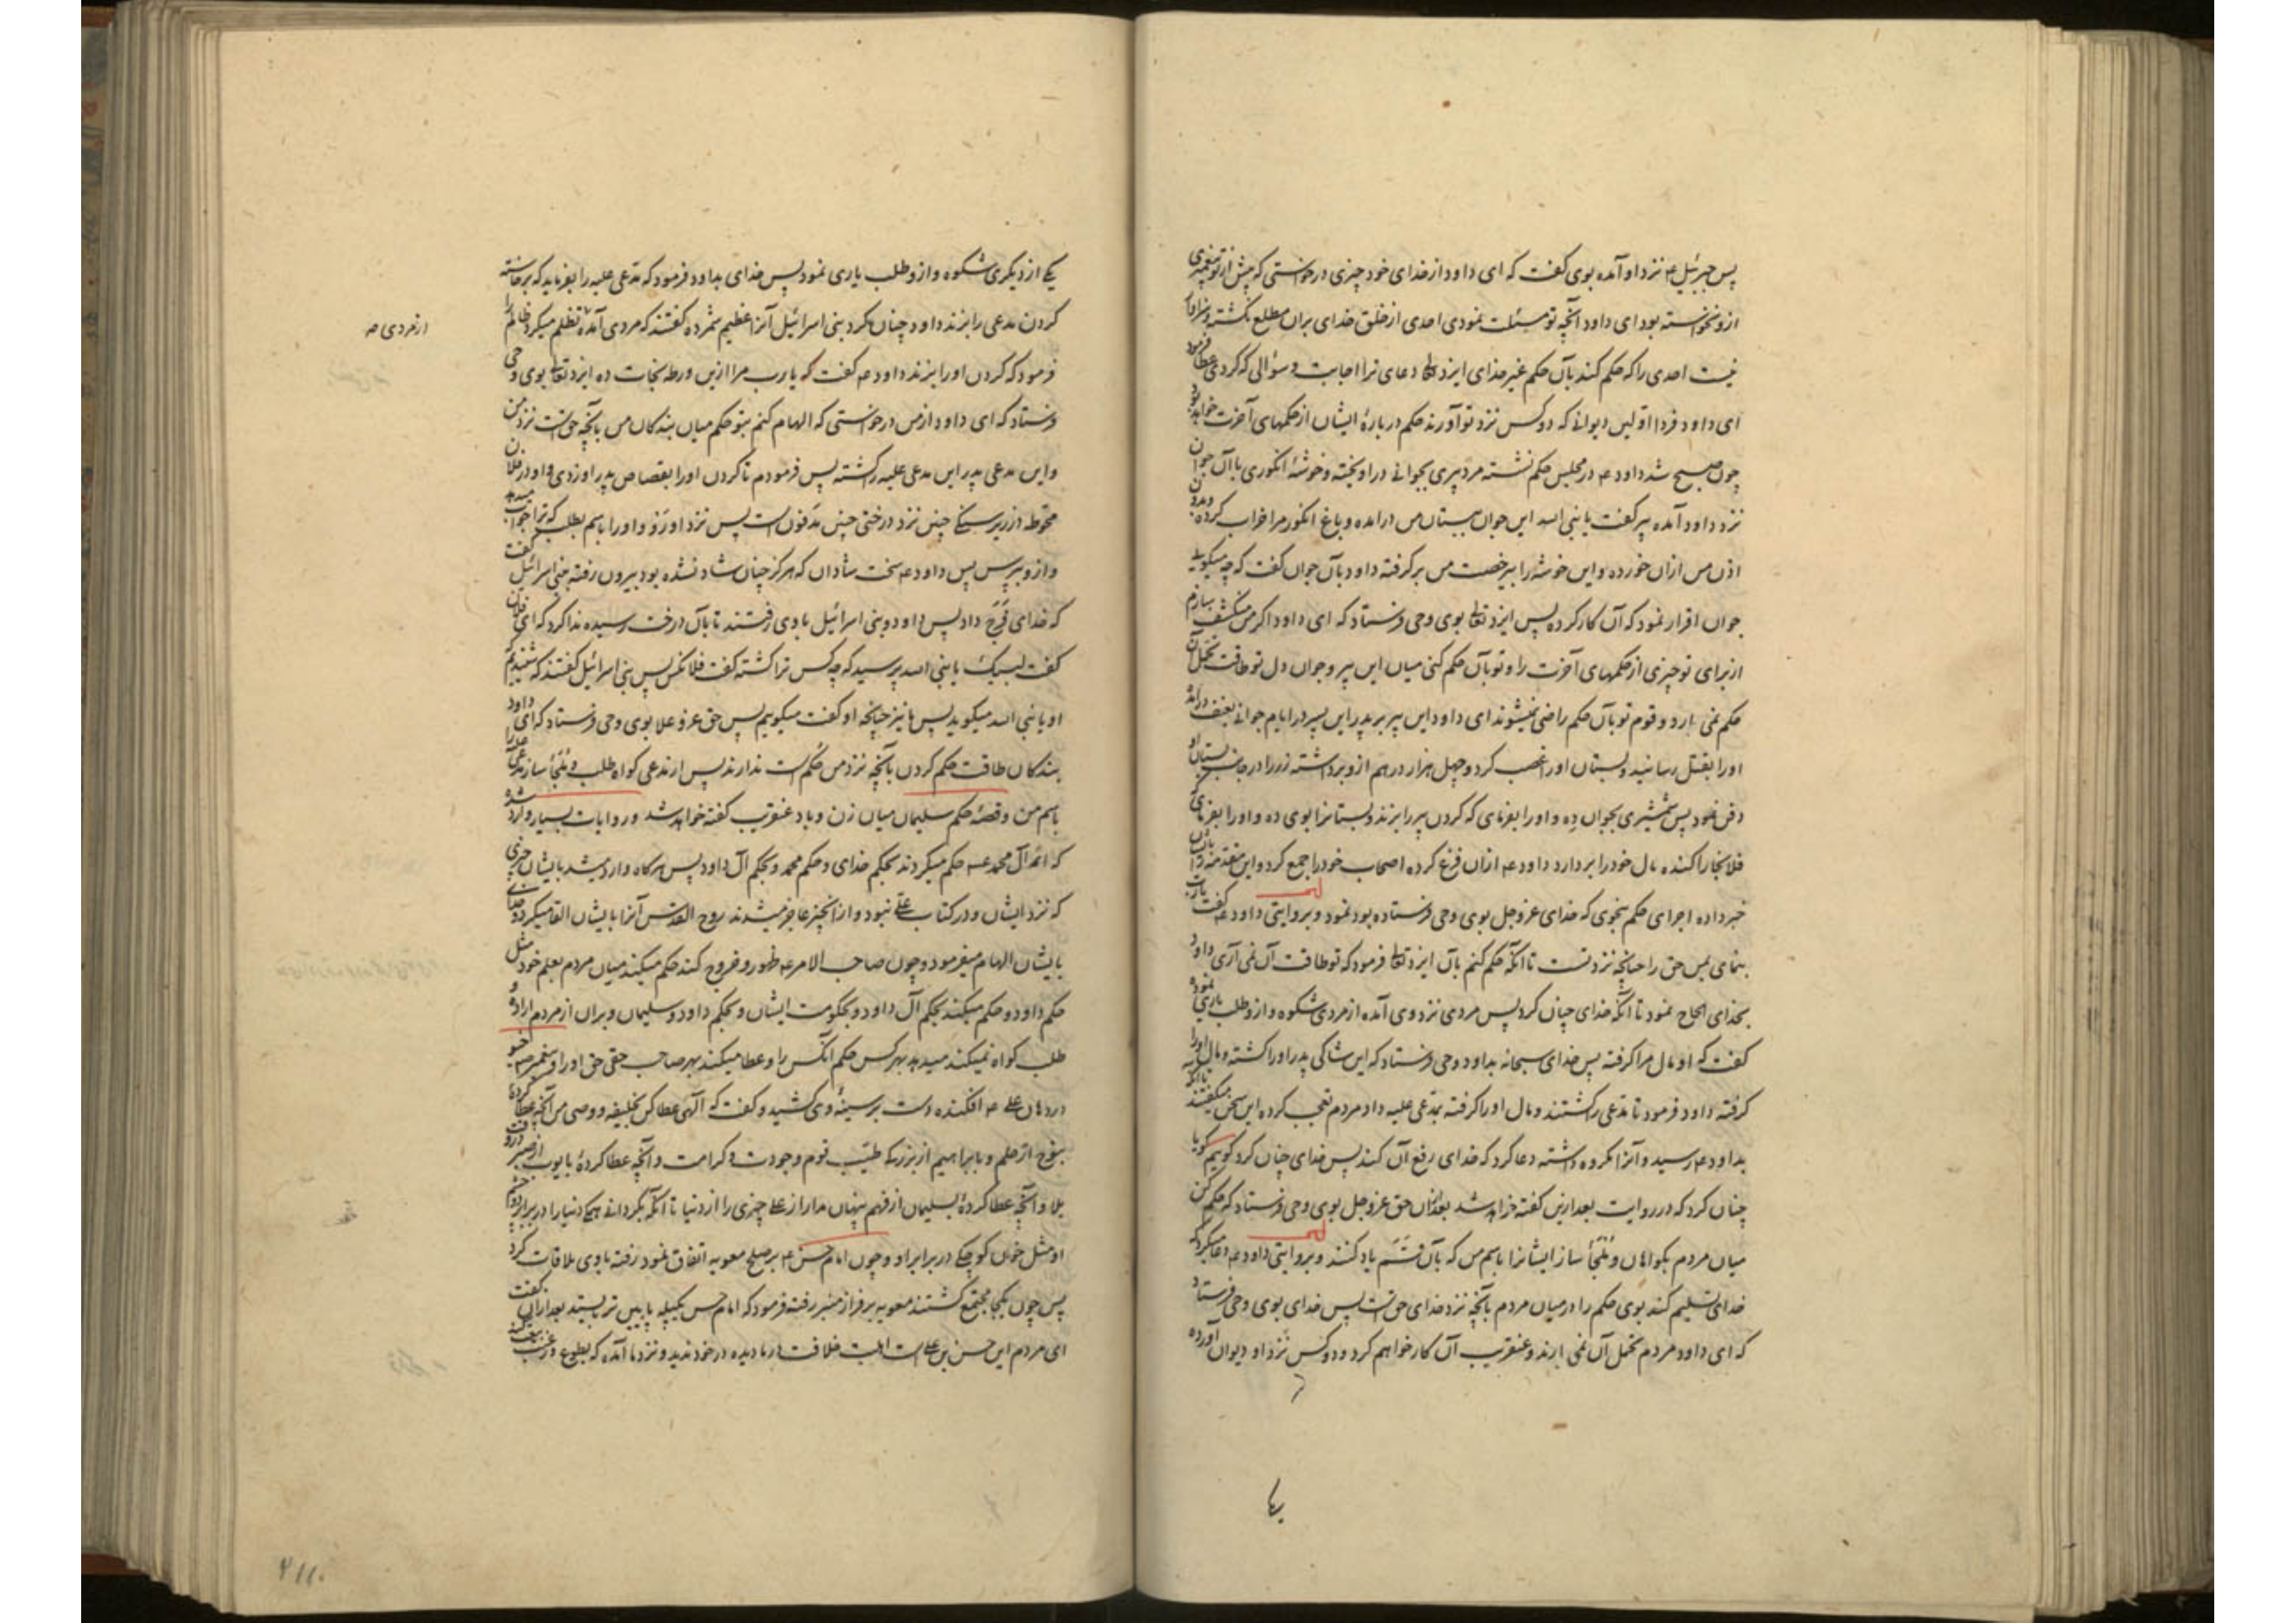 پس جبرئیل ع نزد او آمده بوی کفت که ای داود از خدای خود چیزی درخواستی که پیش از تو پیغمبری
ازو نخواسته بود ای داود آنچه تو مسئلت نمودی احدی از خلق خدای بران مطلع نکشته و سزاوار
نیست احدی را که حکم کند بآن حکم غیر خدای ایزد تعالی دعای ترا اجابت و سؤالی که کردی عطا فرمود
ای داود فردا اولین دیوانی که دو کس نزد تو آورند حکم دربارهٔ ایشان از حکمهای آخرت خواهد بود
چون صبح شد داود ع در مجلس حکم نشسته مرد پیری بجوانی در اویخته و خوشهٔ انکوری با آن جوان
نزد داود آمده پیر کفت یا نبی الله این جوان ببستان من درامده و باغ انکور مرا خراب کرده و بدون
اذن من ازان خورده و این خوشه را بیرخصت من برکرفته داود بآن جوان کفت که چه میکویی
جوان اقرار نمود که آن کار کرده پس ایزد تعالی بوی وحی فرستاد که ای داود اکر من منکشف سازم
از برای تو چیزی از حکمهای آخرت را و تو بآن حکم کنی میان این پیر و جوان دل تو طاقت تحمل آن
حکم نمی ارد و قوم تو بآن حکم راضی نمیشوند ای داود این پیر بر پدر این پسر در ایام جوانی بعنف درآمده
اورا بقتل رسانید و بستان اورا غصب کرد و چهل هزار درهم ازو برداشته زر را در جانب بستان او
دفن نمود پس شمشیری بجوان ده و اورا بفرمای که کردن پیر را بزند و بستانرا بوی ده و اورا بفرمای که
فلانجا را کنده مال خود را بردارد داود ع ازان فزع کرده اصحاب خود را جمع کرد و این مقدمه را بایشان
خبر داده اجرای حکم بنحوی که خدای عز و جل بوی وحی فرستاده بود نمود و بروایتی داود ع کفت یارب
بنمای بمن حق را چنانچه نزد تست تا انکه حکم کنم بآن ایزد تعالی فرمود که تو طاقت آن نمی آری داود
بخدای الحاح نمود تا آنکه خدای چنان کرد پس مردی نزد وی آمده از مردی شکوه و ازو طلب یاری نموده
کفت که او مال مرا کرفته پس خدای سبحانه بداود وحی فرستاد که این شاکی پدر اورا کشته و مال اورا
کرفته داود فرمود تا مدعی را کشتند و مال اورا کرفته بمدعی علیه داد مردم تعجب کرده این سخن میکفتند تا آنکه
بداود ع رسید و آنرا مکروه داشته دعا کرد که خدای رفع آن کند پس خدای چنان کرد کوییم کویا
چنان کرد که در روایت بعد ازین کفته خواهد شد بعد ازان حق عز و جل بوی وحی فرستاد که حکم کن
میان مردم بکواهان و ملجأ ساز ایشانرا باسم من که بآن قسم یاد کنند و بروایتی داود ع دعا میکرد که
خدای تعلیم کند بوی حکم را در میان مردم بآنچه نزد خدای حق است پس خدای بوی وحی فرستاد
که ای داود مردم تحمل آن نمی ارند و عنقریب آن کار خواهم کرد و دو کس نزد او دیوان آورده
یکی از دیکری شکوه و ازو طلب یاری نمود پس خدای بداود فرمود که مدعی علیه را بفرماید که برخاسته
کردن مدعی را بزند داود چنان کرد بنی اسرائیل آنرا عظیم شمرده کفتند که مردی آمده تظلم میکرد ظالم را
از مردی صه
فرمود که کردن اورا بزند داود ع کفت که یارب مرا ازین ورطه نجات ده ایزد تعالی بوی وحی
فرستاد که ای داود از من درخواستی که الهام کنم بتو حکم میان بندکان من بآنچه حق است نزد من
و این مدعی پدر این مدعی علیه را کشته پس فرمودم تا کردن اورا بقصاص پدر او زدی و او در فلان
محوطه در زیر سنکی چنین نزد درختی چنین مدفون است پس نزد او رو و اورا باسم بطلب که ترا جواب میدهد
و ازو بپرس پس داود ع سخت شادان که هرکز چنان شاد نشده بود بیرون رفته ببنی اسرائیل کفت
که خدای فرج داد پس داود و بنی اسرائیل با وی رفتند تا بآن درخت رسیده ندا کرد که ای فلان
کفت لبیک یا نبی الله پرسید که چه کس ترا کشته کفت فلانکس پس بنی اسرائیل کفتند که شنیدیم که
او یا نبی الله میکوید پس ما نیز چنانچه او کفت میکوییم پس حق عز و علا بوی وحی فرستاد که ای داود
بندکان طاقت حکم کردن بآنچه نزد من حکم است ندارند پس از مدعی کواه طلب و ملجأ ساز مدعی علیه را
باسم من و قصهٔ حکم سلیمان میان زن و باد عنقریب کفته خواهد شد و روایات بسیار وارد شده
که ائمه آل محمد ع حکم میکردند بحکم خدای و حکم محمد و بحکم آل داود پس هرکاه وارد میشد بایشان چیزی
که نزد ایشان و در کتاب علی نبود و از انچیز عاجز میشدند روح القدس آنرا بایشان القا میکرد و خدای
بایشان الهام میفرمود و چون صاحب الامر ع ظهور و خروج کند حکم میکند میان مردم بعلم خود مثل
حکم داود و حکم میکند بحکم آل داود و بحکومت ایشان و بحکم داود و سلیمان و بران از مردم اراده و
طلب کواه نمیکند میدهد بهر کس حکم انکس را و عطا میکند بهر صاحب حقی حق اورا و پیغمبر ص
در دهان علی ع افکنده دست بر سینهٔ وی کشید و کفت که الهی عطا کن بخلیفه و وصی من آنچه عطا کردهٔ
بنوح از حلم و بابراهیم از بزرکی طیّب قوم وجودت و کرامت و آنچه عطا کردهٔ بایوب از صبر در وقت
بلا و آنچه عطا کردهٔ بسلیمان از فهم پنهان مدار از علی چیزی را از دنیا تا آنکه بکردانی همکی دنیا را در برابر چشم
او مثل خوان کوچکی در برابر او و چون امام حسن ع بر صلح معویه اتفاق نمود رفته با وی ملاقات کرد
پس چون یکجا مجتمع کشتند معویه بر فراز منبر رفته فرمود که امام حسن یکپله پایین تر بیستد بعد ازان کفت
ای مردم این حسن بن علی است اهلیت خلافت در ما دیده در خود ندید و نزد ما آمده که بطوع و رغبت بیعت کند
۴۱۱۰